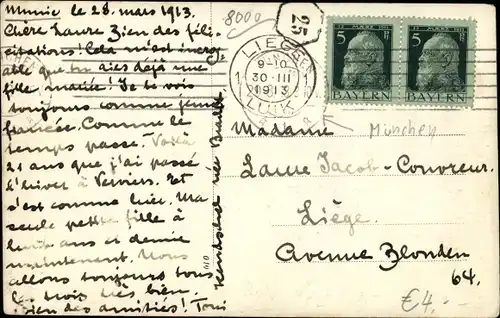 Munic le 28. mars 1913.
Chère Laure Bien des féli-
citations! Cela n'est incroy-
able que tu aies déjà une
fille mariée! Je te vois
toujours comme jeune
fiancée. Comme le
temps passe. Voilà
21 ans que j'ai passé
l'hiver à Verviers. Et
c'est comme hier. Ma
seule petite fille à
huit ans et demie
maintenant. Nous
allons toujours tous
les trois très bien.
Bien des amitiés! Toni
née
8000
25
LIEGE
9-10
30-III
1913
LUIK
1
1
5 Pf
BAYERN
5 Pf
BAYERN
München
Madame
Laure Jacob-Couvreur.
Liége.
Avenue Blonden
64.
€4,-